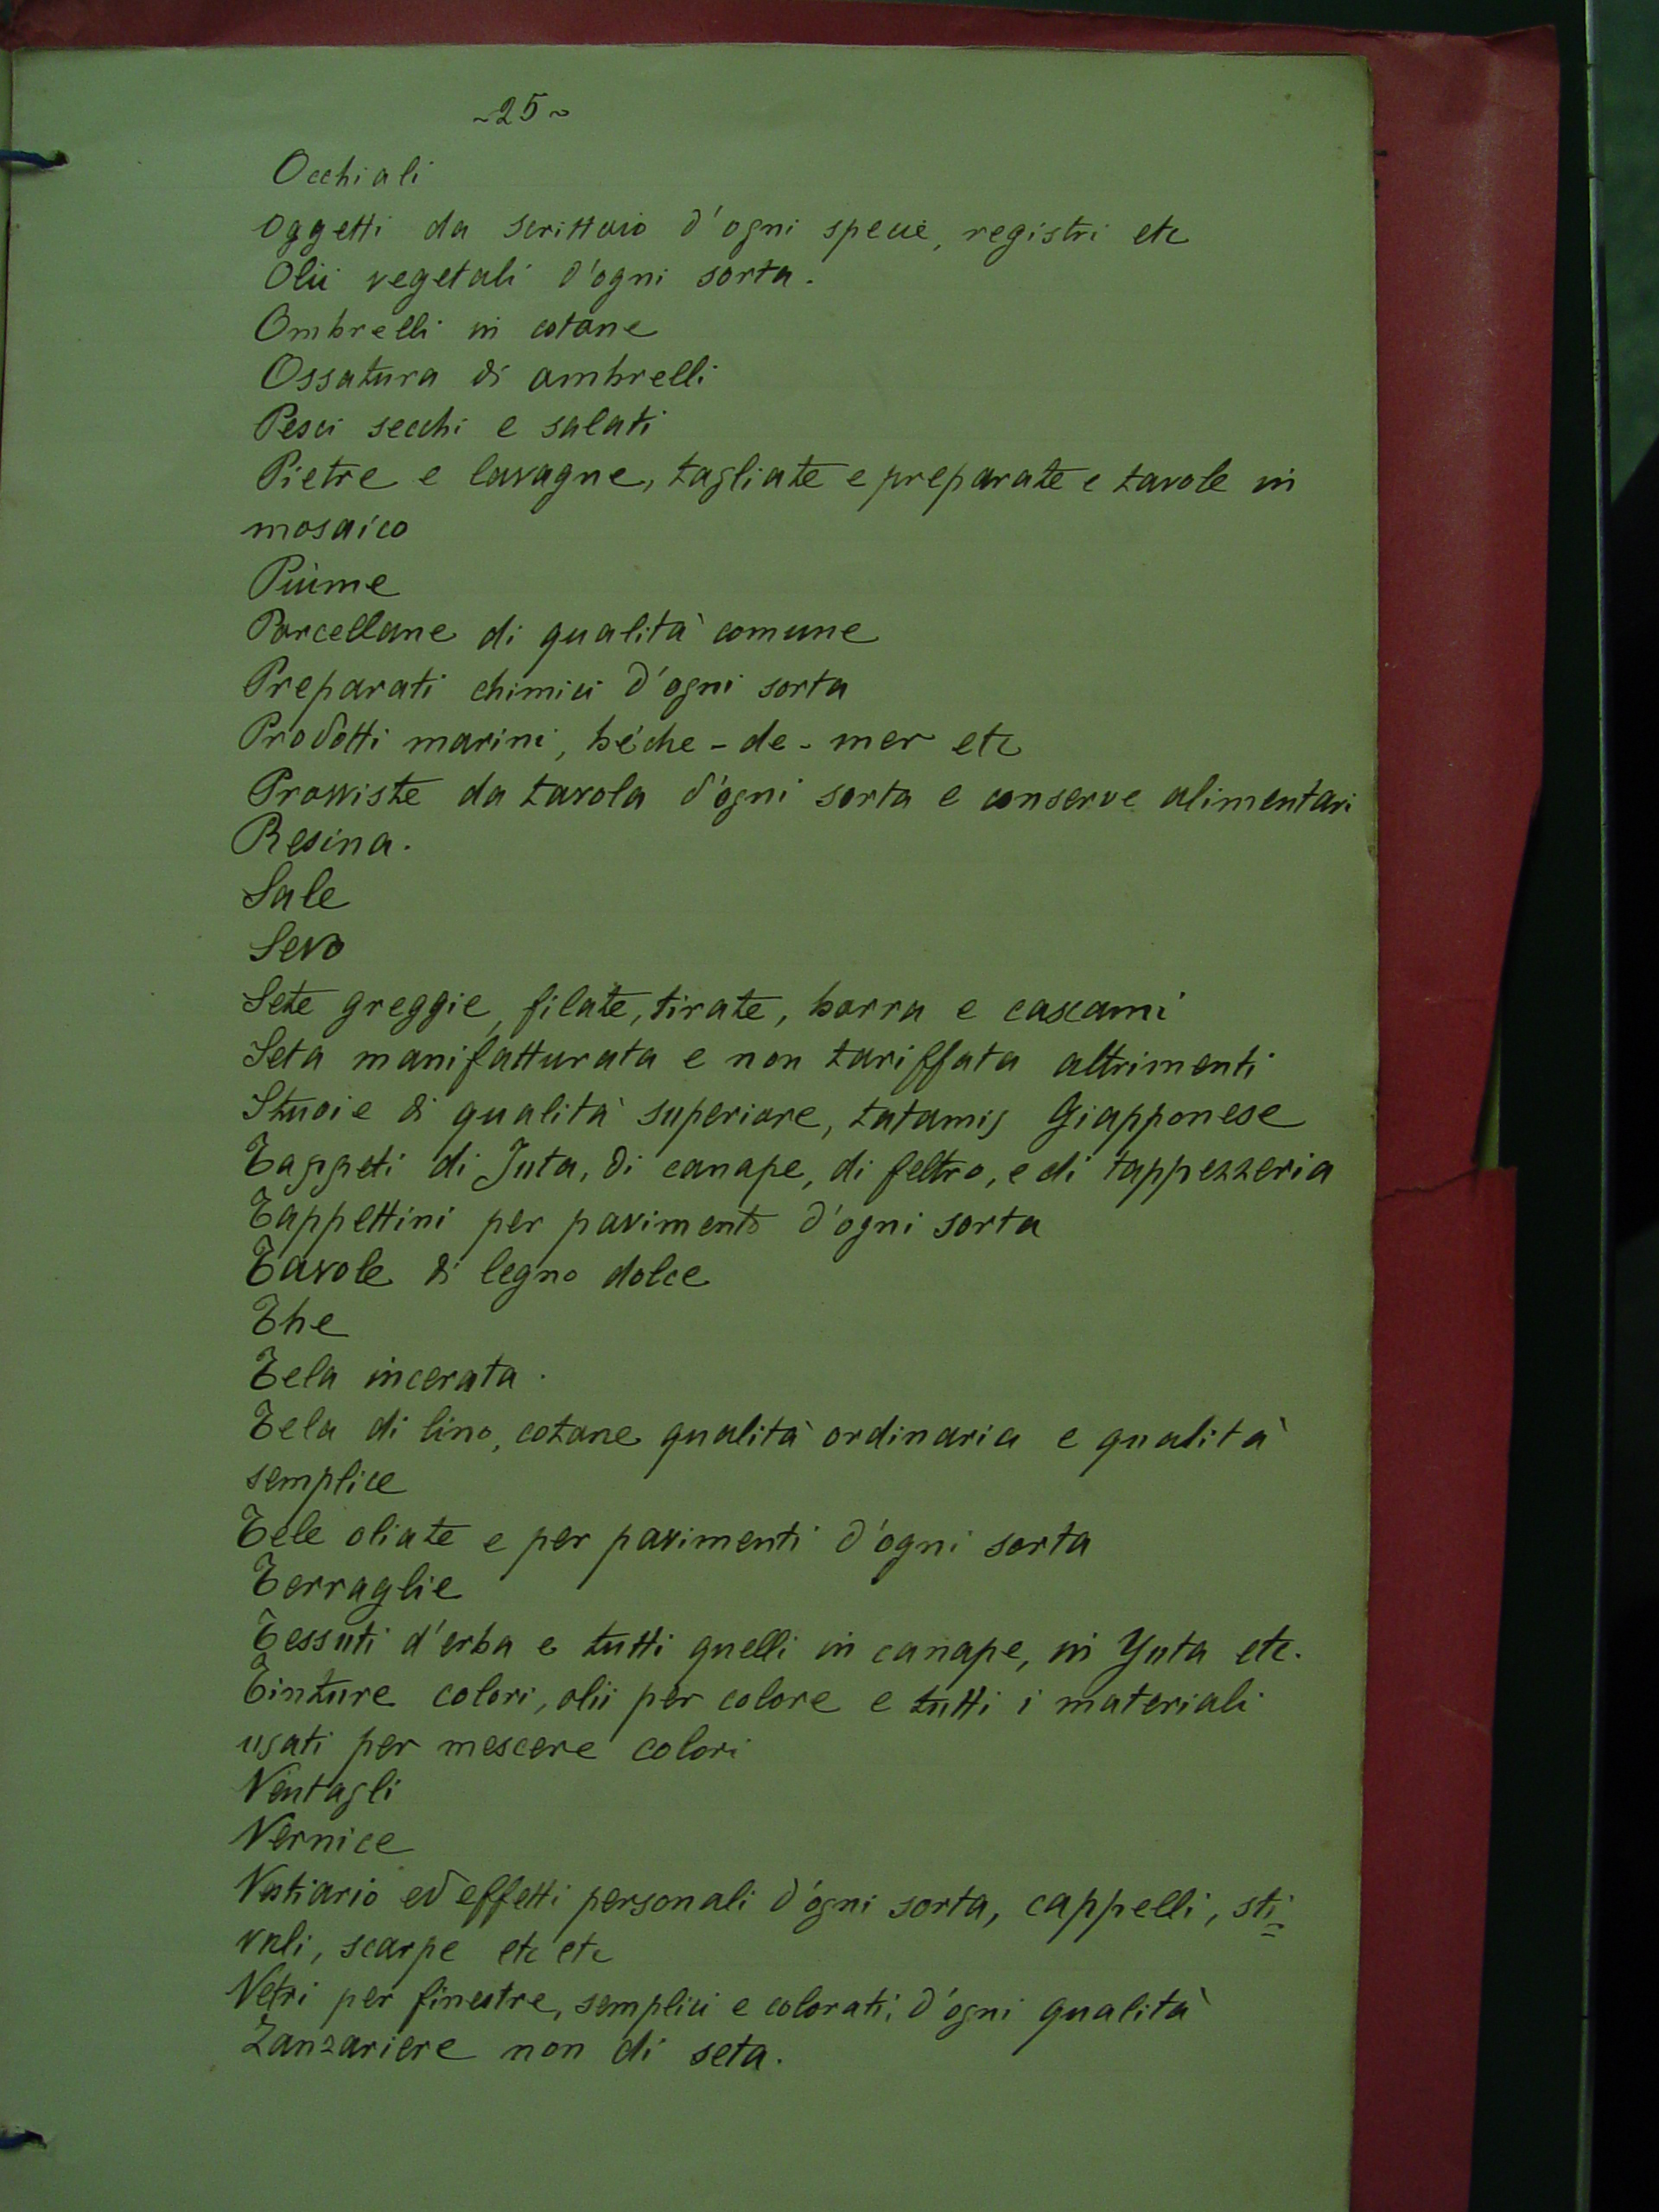 ~25~
Occhiali
Oggetti da scrittoio d'ogni specie, registri etc
Olii vegetali d'ogni sorta.
Ombrelli in cotone
Ossatura di ombrelli
Pesci secchi e salati
Pietre e lavagne, tagliate e preparate e tavole in
mosaico
Piume
Porcellane di qualità comune
Preparati chimici d'ogni sorta
Prodotti marini, béche-de-mer etc
Provviste da tavola d'ogni sorta e conserve alimentari
Resina.
Sale
Sevo
Sete greggie, filate, tirate, borra e cascami
Seta manifatturata e non tariffata altrimenti
Stuoie di qualità superiore, tatamis Giapponese
Tappeti di Juta, di canape, di feltro, e di tappezzeria
Tappettini per pavimento d'ogni sorta
Tavole di legno dolce
The
Tela incerata.
Tela di lino, cotone qualità ordinaria e qualità
semplice
Tele oliate e per pavimenti d'ogni sorta
Terraglie
Tessuti d'erba e tutti quelli in canape, in Yuta etc.
Tinture colori, olii per colore e tutti i materiali
usati per mescere colori
Ventagli
Vernice
Vestiario ed effetti personali d'ogni sorta, cappelli, sti=
vali, scarpe etc etc
Vetri per finestre, semplici e colorati, d'ogni qualità
Zanzariere non di seta.